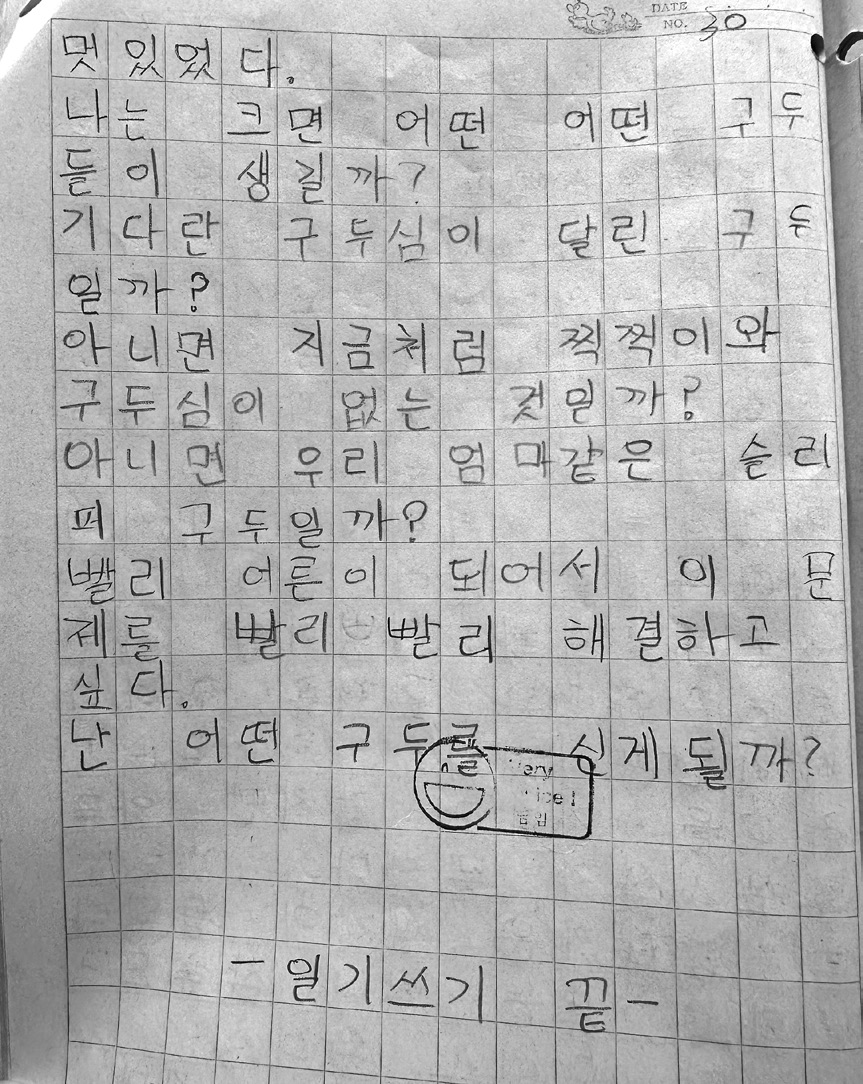 DATE
NO. 30
멋있었다.
나는 크면 어떤 어떤 구두
들이 생길까?
기다란 구두심이 달린 구두
일까?
아니면 지금처럼 찍찍이와
구두심이 없는 것일까?
아니면 우리 엄마같은 슬리
퍼 구두일까?
빨리 어른이 되어서 이 문
제를 빨리 빨리 해결하고
싶다.
난 어떤 구두를 신게 될까?
Very
Nice!
담임
-일기쓰기 끝-